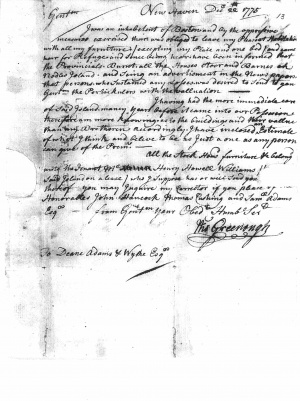 Gent.n New Haven 22 1775
13
I was an inhabitant of Boston and by the oppressive
measures exercised there was obliged to leave my
with all my furniture excepting my Plate and one bed and came
here for Refuge and since being here have been informed that
the Provincials Burnt all the Houses Stoor and Barnes at
Nodles Island and Seeing an advertisement in the News paper
that persons who Sustained any losses was desired to Send to you
Gent.n the Particulars with the valluation
I having had the more immediate care
of Said Island many years before it came into our Possession
therefore am more knowing as to the buildings and their value
than my Brethren accordingly I have inclosed Estimate
of what I think and beleive to be as Just as any person
can judg of the Prem.s
All the Stock Hous furniture &c belong
unto the Tenant Mr Henry Howell Williams
Said Island on a lease who I Suppose has or will Send you
thereof you may Inquire my Carrector if you please of
Honorable John Hancock Thomas Cushing and Sam Adams
Esq. from Gent.n your Obed.t Humb.e Ser.t
Tho.s Greenough
To Deane Adams & Wythe Esq.rs